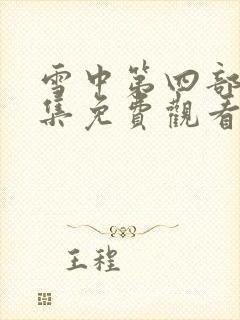 雪中第四部
集免費觀看
王程